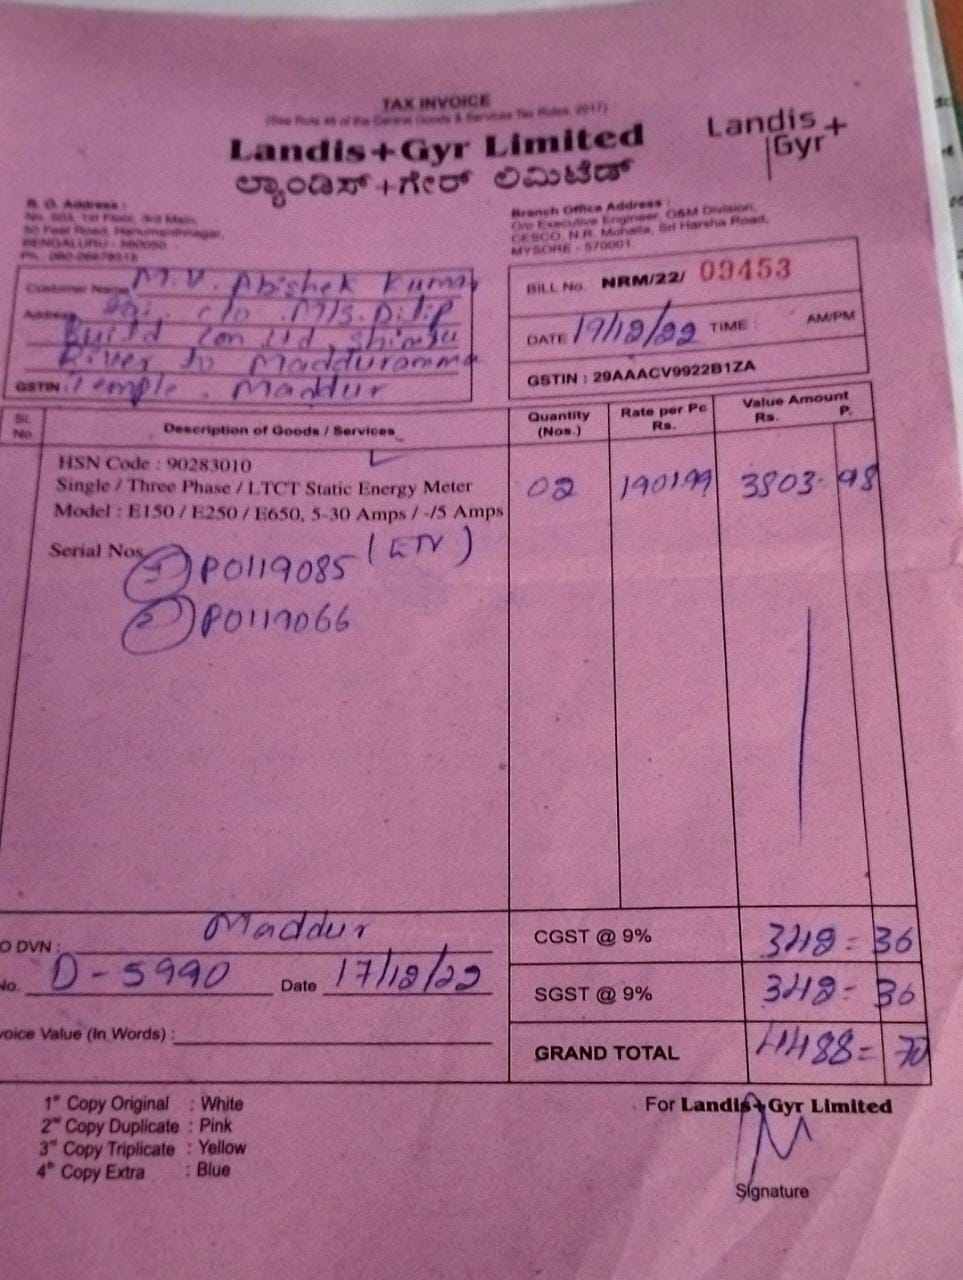 TAX INVOICE
(See Rule 46 of the Central Goods & Services Tax Rules, 2017)
Landis+Gyr Limited
ಲ್ಯಾಂಡಿಸ್+ಗೇರ್ ಲಿಮಿಟೆಡ್
Landis+
Gyr
R. O. Address :
No. 503, 1st Floor, 3rd Main,
50 Feet Road, Hanumanthnagar,
BENGALURU - 560050
Branch Office Address :
O/o Executive Engineer, O&M Division,
CESCO, N.R. Mohalla, Sri Harsha Road,
MYSORE - 570001
Customer Name M.V. Abishek Kumar
Address c/o M/s. Dilip
Build Con Ltd, Shimsa
River to Madduramma
GSTIN : Temple. Maddur
BILL No. NRM/22/ 09453
DATE 19/12/22 TIME : AM/PM
GSTIN : 29AAACV9922B1ZA
Sl. No. Description of Goods / Services Quantity (Nos.) Rate per Pc Rs. Value Amount Rs. P.
HSN Code : 90283010
Single / Three Phase / LTCT Static Energy Meter 02 1901.99 3803- 98
Model : E150 / E250 / E650, 5-30 Amps / -/5 Amps
Serial Nos
1 P0119085 (ETV)
2 P0119066
O DVN : Maddur
No. D-5990 Date 17/12/22
voice Value (In Words) :
CGST @ 9% 342= 36
SGST @ 9% 342= 36
GRAND TOTAL 4488= 70
1st Copy Original : White
2nd Copy Duplicate : Pink
3rd Copy Triplicate : Yellow
4th Copy Extra : Blue
For Landis+Gyr Limited
Signature